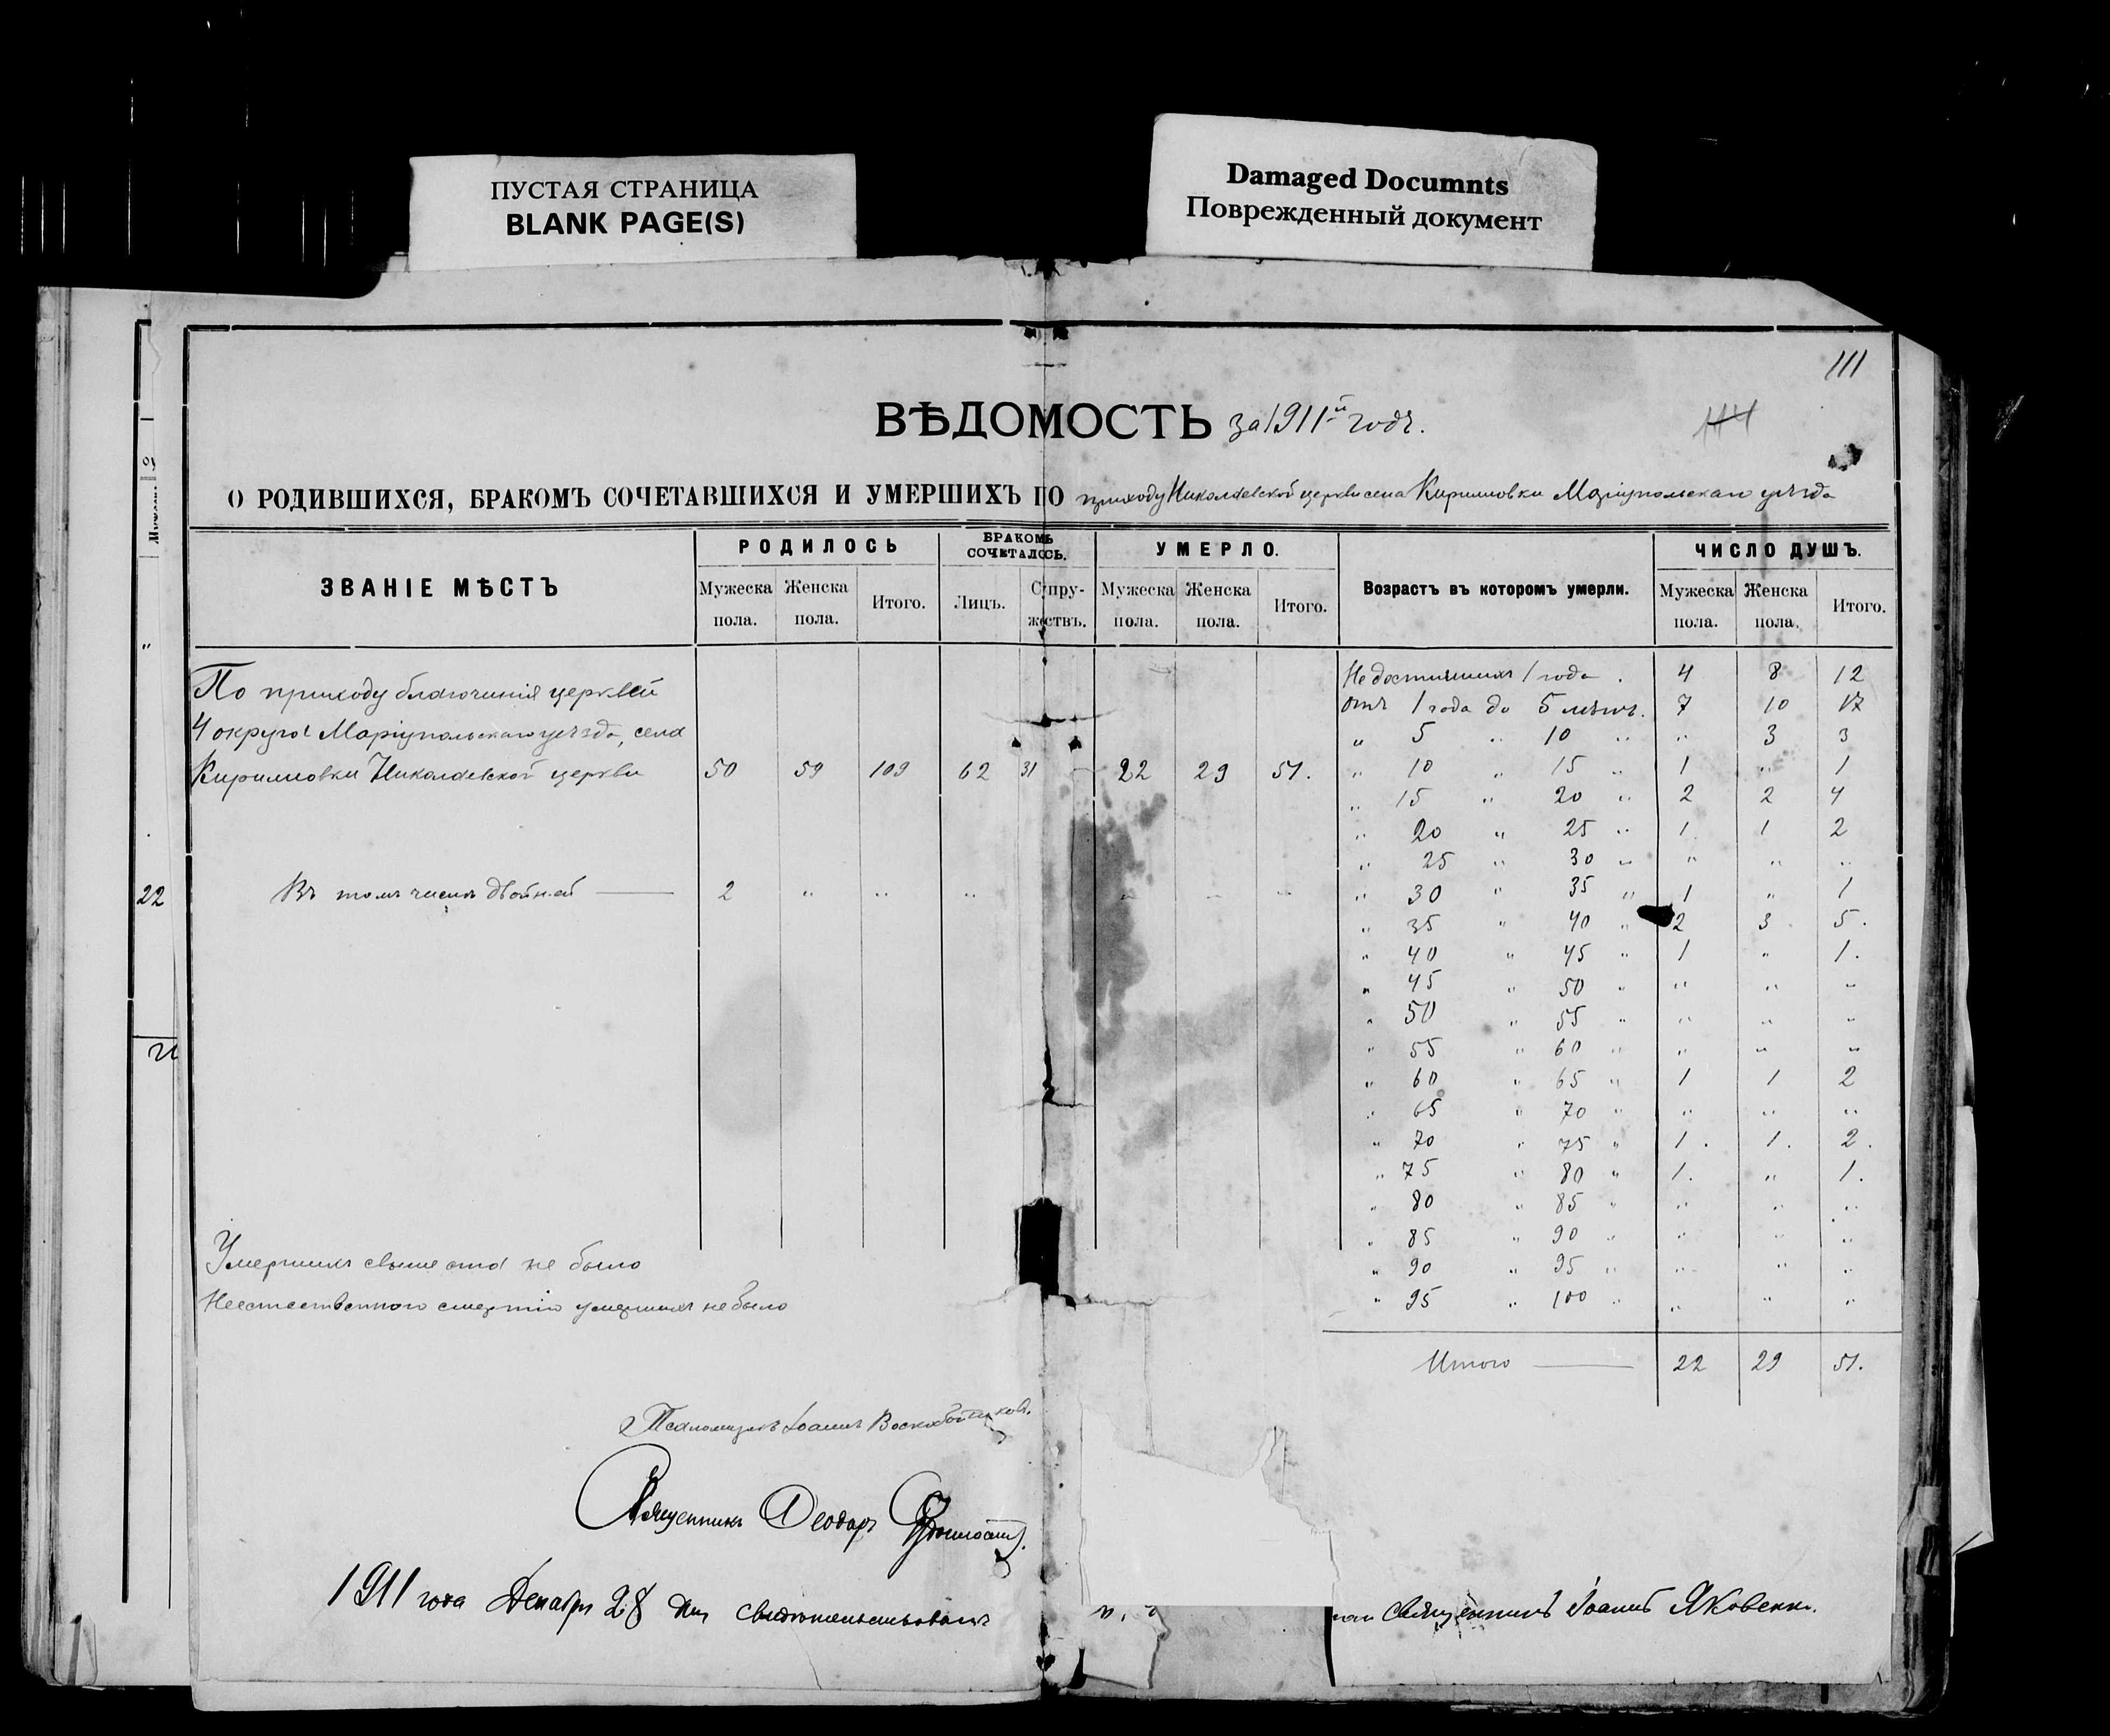 ПУСТАЯ СТРАНИЦА
BLANK PAGE(S)
Damaged Documnts
Поврежденный документ
111
ВѢДОМОСТЬ за 1911й годъ.
О РОДИВШИХСЯ, БРАКОМЪ СОЧЕТАВШИХСЯ И УМЕРШИХЪ ПО приходу Николаевской церкви села Кирилловки Маріупольскаго уѣзда
ЗВАНІЕ МѢСТЪ РОДИЛОСЬ БРАКОМЪ СОЧЕТАЛОСЬ. УМЕРЛО. Возрастъ въ которомъ умерли. ЧИСЛО ДУШЪ.
Мужеска пола. Женска пола. Итого. Лицъ. Супружествъ. Мужеска пола. Женска пола. Итого. Мужеска пола. Женска пола. Итого.
По приходу благочинія церквей
4 округа Маріупольскаго уѣзда, села
Кирилловки Николаевской церкви 50 59 109 62 31 22 29 51.
Въ томъ числѣ двойней — 2 " " " " " "
Недостигшихъ 1 года . 4 8 12
Отъ 1 года до 5 лѣтъ. 7 10 17
" 5 " 10 " " 3 3
" 10 " 15 " 1 " 1
" 15 " 20 " 2 2 4
" 20 " 25 " 1 1 2
" 25 " 30 " " " "
" 30 " 35 " 1 " 1
" 35 " 40 " 2 3 5.
" 40 " 45 " 1 " 1.
" 45 " 50 " " " "
" 50 " 55 " " " "
" 55 " 60 " " " "
" 60 " 65 " 1 1 2
" 65 " 70 " " " "
" 70 " 75 " 1. 1. 2.
" 75 " 80 " 1. " 1.
" 80 " 85 " " " "
" 85 " 90 " " " "
" 90 " 95 " " " "
" 95 " 100 " " " "
Итого — 22 29 51.
Умершихъ свыше ста не было
Неестественною смертію умершихъ не было
Псаломщикъ Іоаннъ Воскобойниковъ.
Священникъ Ѳеодоръ
1911 года Декабря 28 дня свидѣтельствовалъ священникъ Іоаннъ Яковенко.
22